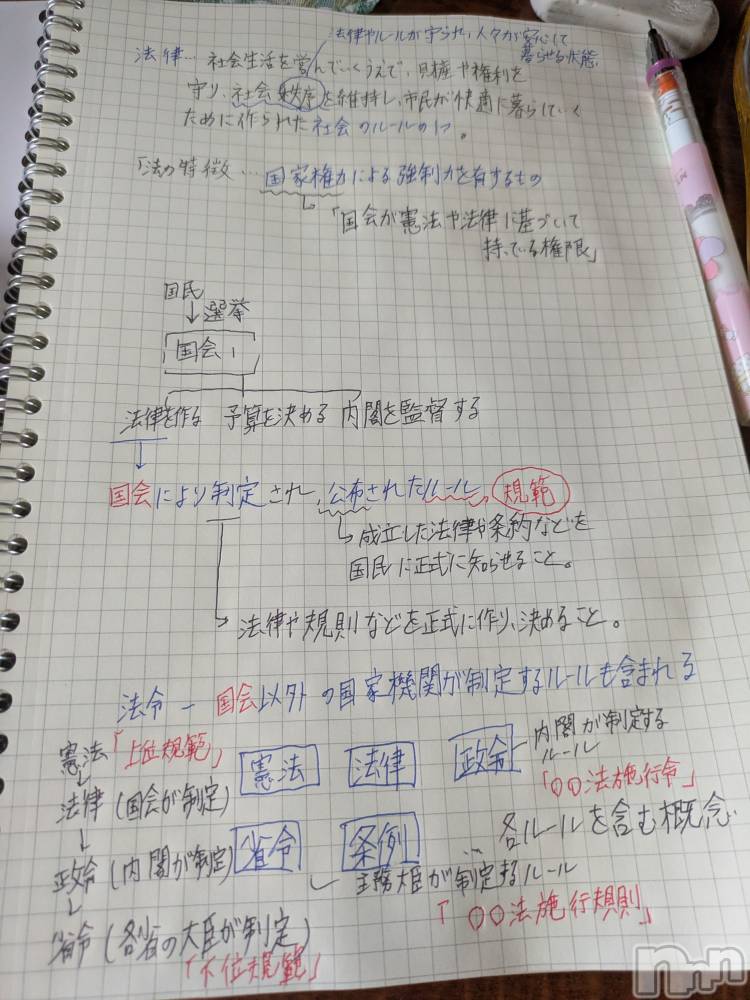 法律やルールが守られ、人々が安心して
暮らせる状態
法律… 社会生活を営んでいくうえで、財産や権利を
守り、社会秩序を維持し、市民が快適に暮らしていく
ために作られた社会のルールの1つ。
「法の特徴… 国家権力による強制力を有するもの
「国会が憲法や法律に基づいて
持っている権限」
国民
↓選挙
国会
法律を作る 予算を決める 内閣を監督する
国会により制定され、公布されたルール 規範
成立した法律や条約などを
国民に正式に知らせること。
法律や規則などを正式に作り、決めること。
法令ー国会以外の国家機関が制定するルールも含まれる
憲法「上位規範」
↓
法律(国会が制定)
↓
政令(内閣が制定)
↓
省令(各省の大臣が制定)
「下位規範」
憲法 法律 政令 内閣が制定する
ルール
「〇〇法施行令」
省令 条例 … 各ルールを含む概念
主務大臣が制定するルール
「〇〇法施行規則」
nmn